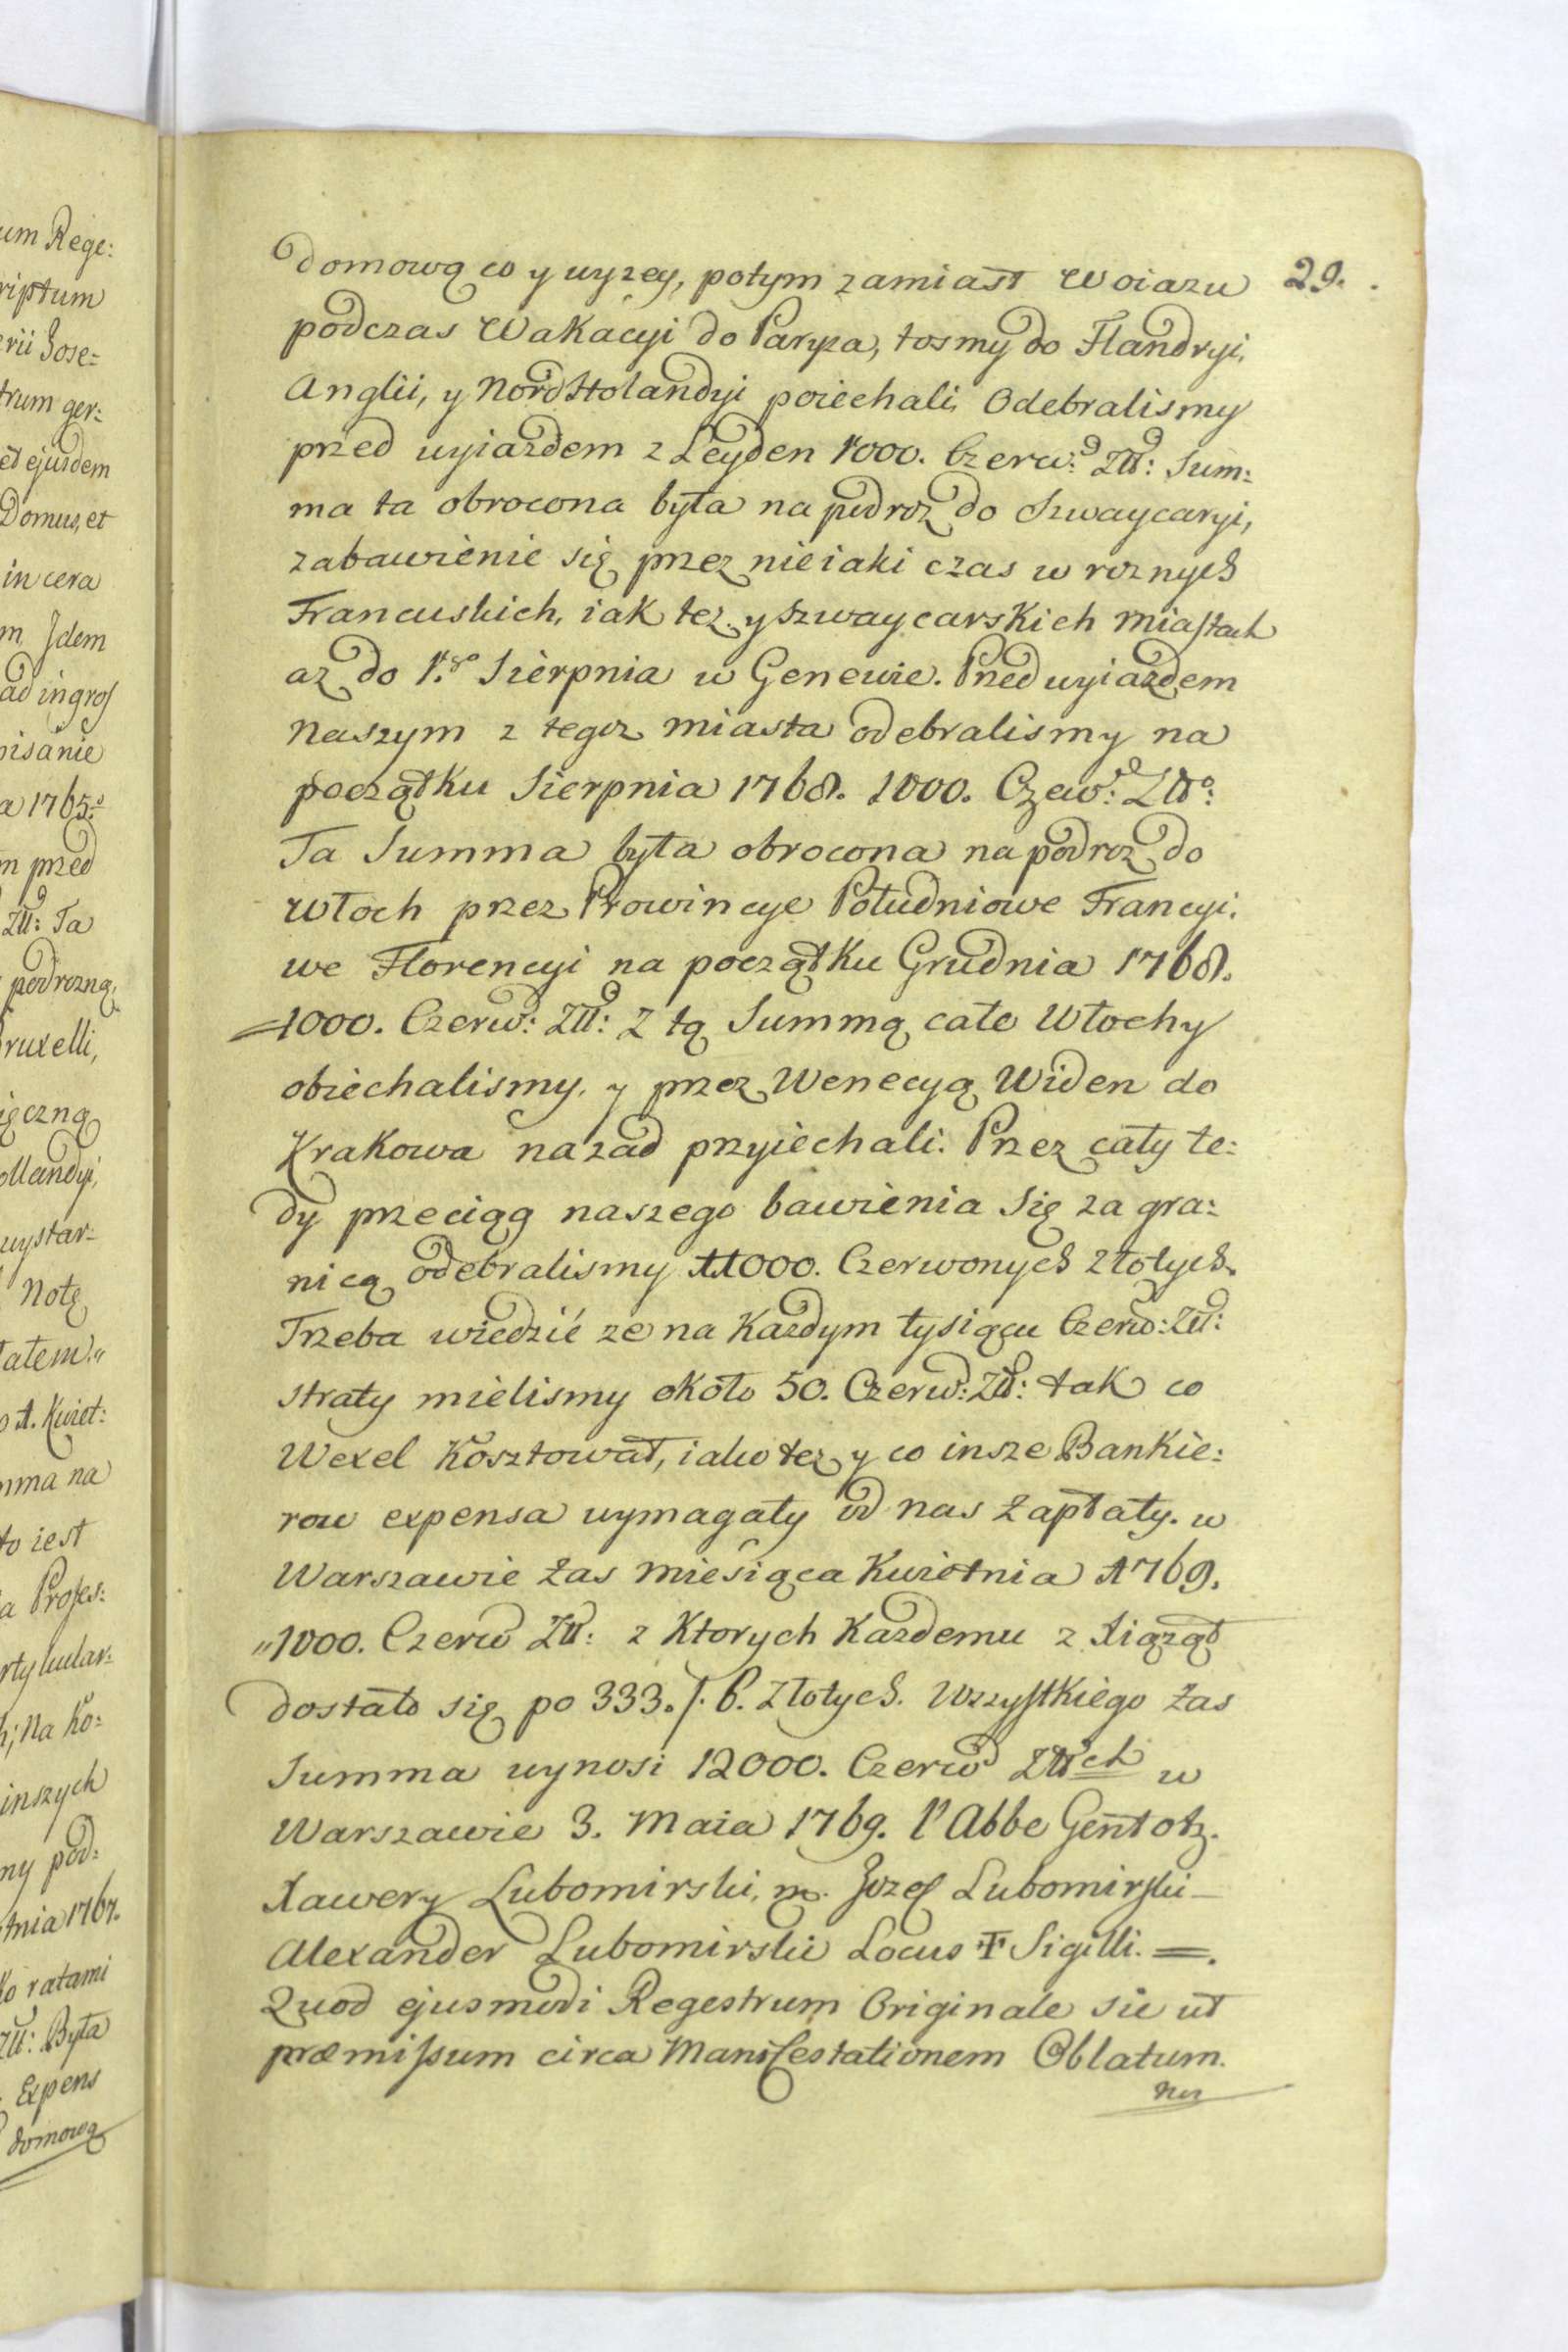 um Rege:
riptum
rii Jose=
trum ger:
et ejusdem
Domus, et
in cera
m Jdem
ad ingros
pisanie
a 1765.
m przed
Złł: Ta
podrozną,
Bruxelli,
ięczną
ollandyi,
wystar-
Notę
łatem."
o 1. Kwiet:
mma na
to iest
a Profes:
rtykular:
h; Na Ko:
inszych
my pod:
tnia 1767.
ko ratami
Złł: Była
Expens
domową
29.
domową co y wyzey, potym zamiast Woiazu
podczas Wakacyi do Paryza, tosmy do Flandryi,
Anglii, y NordHolandyi poiechali, Odebralismy
przed wyiazdem z Leyden 1000. Czerw: Złł: Sum:
ma ta obrocona była na podroz do Szwaycaryi,
zabawienie się przez nieiaki czas w roznych
Francuskich, iak tez y Szwaycarskich miastach
az do 1.go Sierpnia w Genewie. Przed wyiazdem
naszym z tegoz miasta odebralismy na
początku Sierpnia 1768. 1000. Czerw: Złł:
Ta Summa była obrocona na podroz do
Włoch przez Prowincye Południowe Francyi.
we Florencyi na początku Grudnia 1768.
=1000. Czerw: Złł: Z tą Summą całe Włochy
obiechalismy, y przez Wenecyą Widen do
Krakowa nazad przyiechali. Przez cały te:
dy przeciąg naszego bawienia się za gra:
nicą odebralismy 11000. Czerwonych Złotych.
Trzeba wiedzić ze na Kazdym tysiącu Czerw: Złł:
straty mielismy około 50. Czerw: Złł: tak co
Wexel Kosztował, iako tez y co insze Bankie:
row expensa wymagały od nas Zapłaty. w
Warszawie Zas miesiąca Kwietnia 1769.
"1000. Czerw Złł: z Ktorych Kazdemu z Xiąząt
dostało się po 333. /. 6. Złotych. Wszystkiego Zas
Summa wynosi 12000. Czerw Złłch w
Warszawie 3. Maia 1769. l'Abbe Gentotz.
Xawery Lubomirski, m. Jozef Lubomirski_
Alexander Lubomirski Locus + Sigilli. =.
Quod ejusmodi Regestrum Originale sic ut
præmissum circa Manifestationem Oblatum.